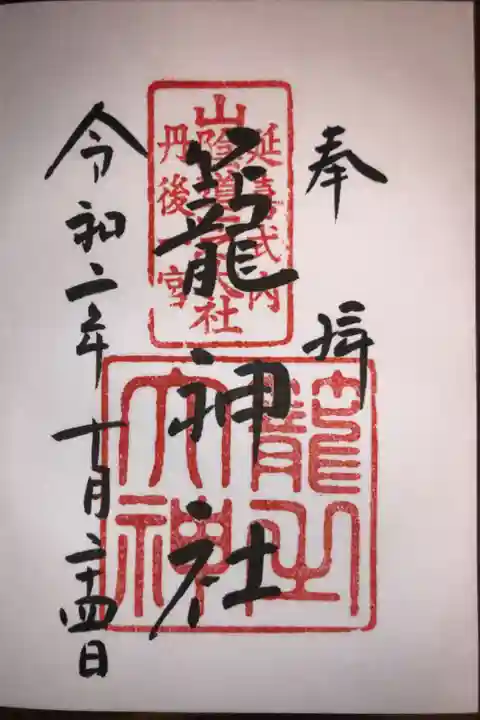 奉拝
籠神社
令和二年十月二十四日
延喜式内
山陰道 大社
丹後一宮
籠之
大神